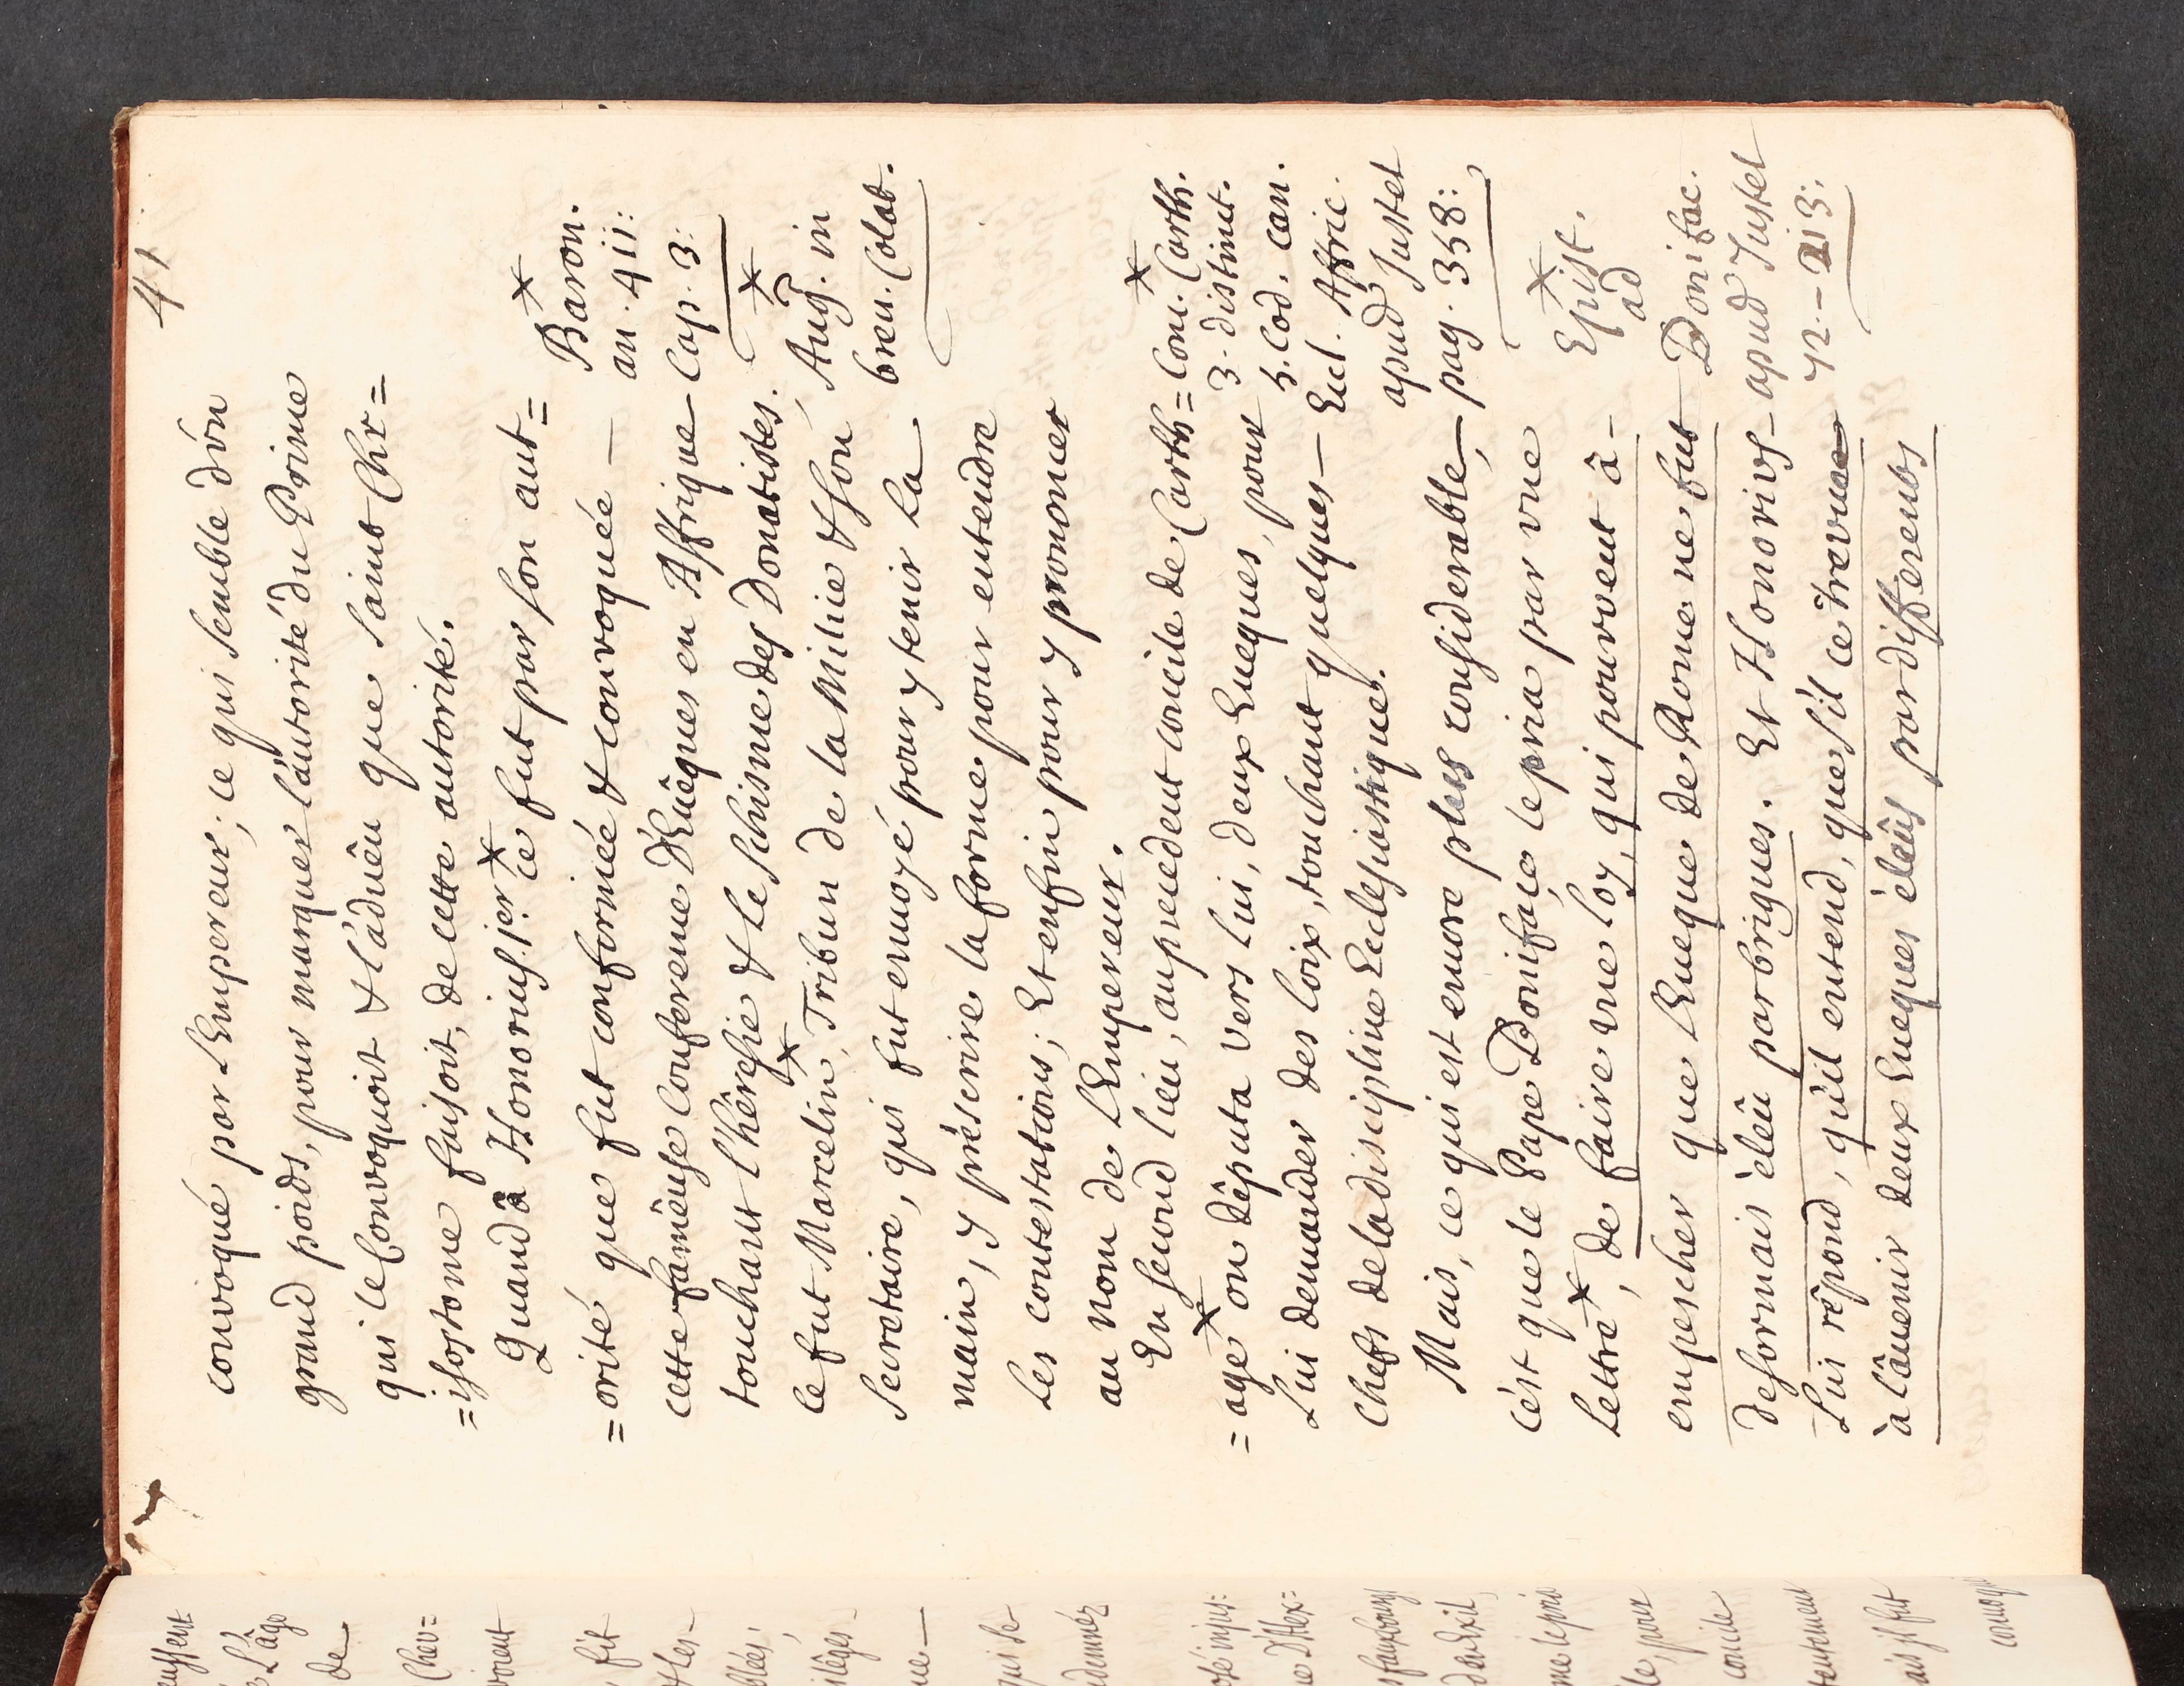 41
convoqué par l'Empereur; ce qui semble d'vn
grand poids, pour marquer l'autorité du Prince
qui le Convoquoit & l'aduêu que saint Chr=
=isostome faisoit, de cette autorité.
Quand à Honorius 1er * ce fut par son aut=
=orité que fut confirmée & convoquée —
cette famêuse Conference d'Euêques en Affrique —
touchant l'hêresie & le schisme des Donatistes.
Ce fut Marcelin *, Tribun de la Milice & son
Secretaire, qui fut enuoyé pour y tenir la
main, y préscrire la forme pour entendre
Les contestations; Et enfin pour y prononcer
au nom de l'Empereur.
En second lieu, au precedent concile de Carth=
=age * on députa vers lui, deux Eueques, pour
Lui demander des loix, touchant quelques —
Chefs de la discipline Ecclesiastique.
Mais, ce qui est encore plus considerable, —
c'est que le Pape Boniface le pria par vne
Lettre *, de faire vne loy, qui pourveut â —
empescher que l'Eueque de Rome ne fut
desormais êleû par brigues. Et Honorius —
Lui rêpond, qu'il entend, que s'il ce trevue
à l'âuenir deux Eueques éleûs par differents
* Baron.
an. 411:
Cap. 3:
* Aug. in
breu. Colat.
* Conc. Carth.
3. distinct.
5. Cod. can.
Eccl. Affric.
apud Justel
pag. 358:
* Epist.
ad
Bonifac.
apud Justel
213:
eussent
L'âge
de
Chev=
fit
qui se
pour
concile
convoqu